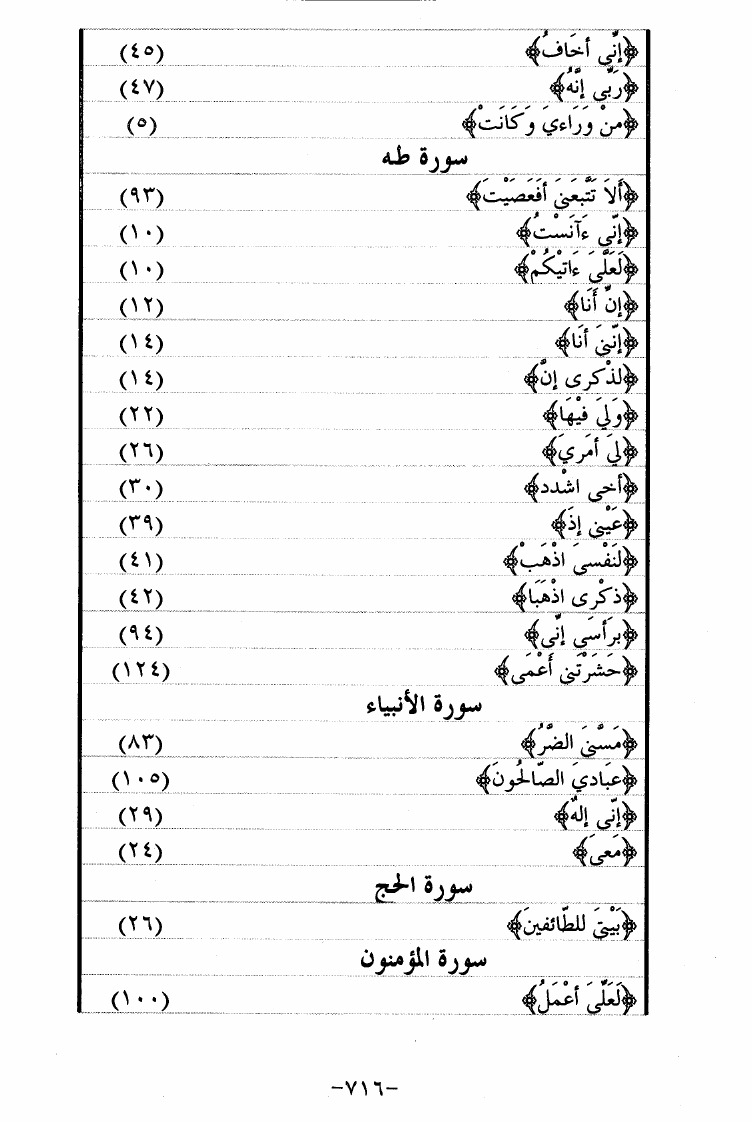 ﴿إِنِّي أَخَافُ﴾ (٤٥)
﴿رَبِّي إِنَّهُ﴾ (٤٧)
﴿مِنْ وَرَاءِيَ وَكَانَتْ﴾ (٥)
سورة طه
﴿أَلاَ تَتَّبِعَنِ أَفَعَصَيْتَ﴾ (٩٣)
﴿إِنِّي ءَآنَسْتُ﴾ (١٠)
﴿لَعَلِّيَ ءَاتِيْكُمْ﴾ (١٠)
﴿إِنِّ أَنَا﴾ (١٢)
﴿إِنَّنِيَ أَنَا﴾ (١٤)
﴿لذكرى إِنَّ﴾ (١٤)
﴿وَلِيَ فِيْهَا﴾ (٢٢)
﴿لِيَ أمرِيَ﴾ (٢٦)
﴿أخى اشْدد﴾ (٣٠)
﴿عَيْنِي إِذْ﴾ (٣٩)
﴿لِنَفْسِيَ اذْهَبْ﴾ (٤١)
﴿ذِكْرى اذْهَبَا﴾ (٤٢)
﴿بِرَأسِي إِنِّي﴾ (٩٤)
﴿حَشَرْتَنِي أَعْمَى﴾ (١٢٤)
سورة الأنبياء
﴿مَسَّنِيَ الضُّرُّ﴾ (٨٣)
﴿عِبَادِيَ الصَّالِحُونَ﴾ (١٠٥)
﴿إِنِّي إِلهٌ﴾ (٢٩)
﴿مَعِيَ﴾ (٢٤)
سورة الحج
﴿بَيْتِيَ لِلطَّائِفِينَ﴾ (٢٦)
سورة المؤمنون
﴿لَعَلِّيَ أَعْمَلُ﴾ (١٠٠)
-٧١٦-